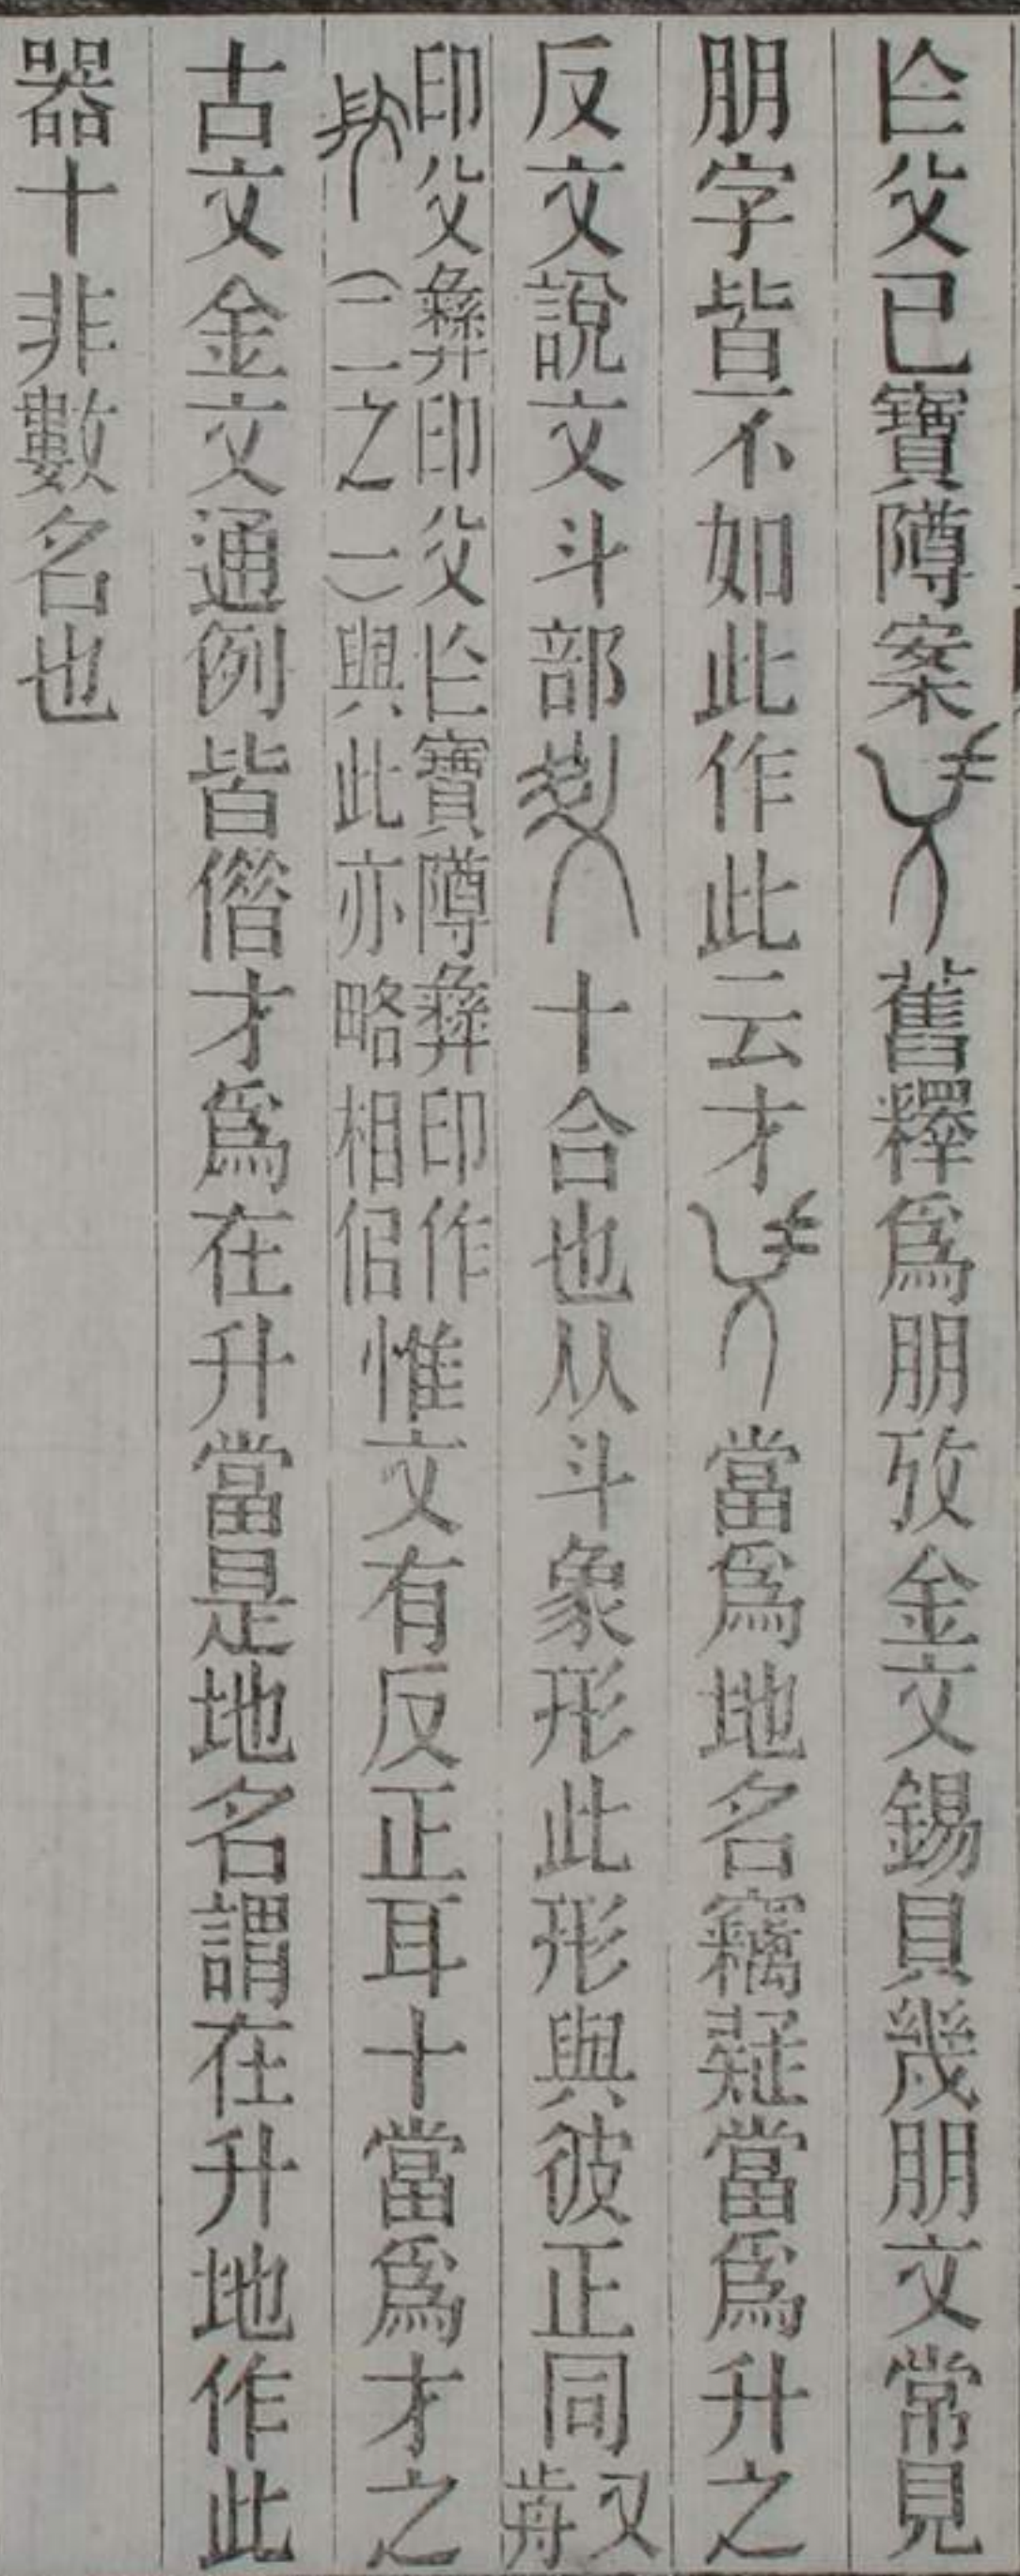 父已寶案舊釋爲朋攷金文錫貝幾朋文常見
朋字皆不如此作此云才當爲地名竊疑當爲升之
反文說文斗部十合也从斗象形此形與彼正同又
印父彝印父寶彝印作
(二之一)與此亦略相佀
惟文有反正耳十當爲才之
古文金文通例皆偺才爲在升當是地名謂在升地作此
器十非數名也